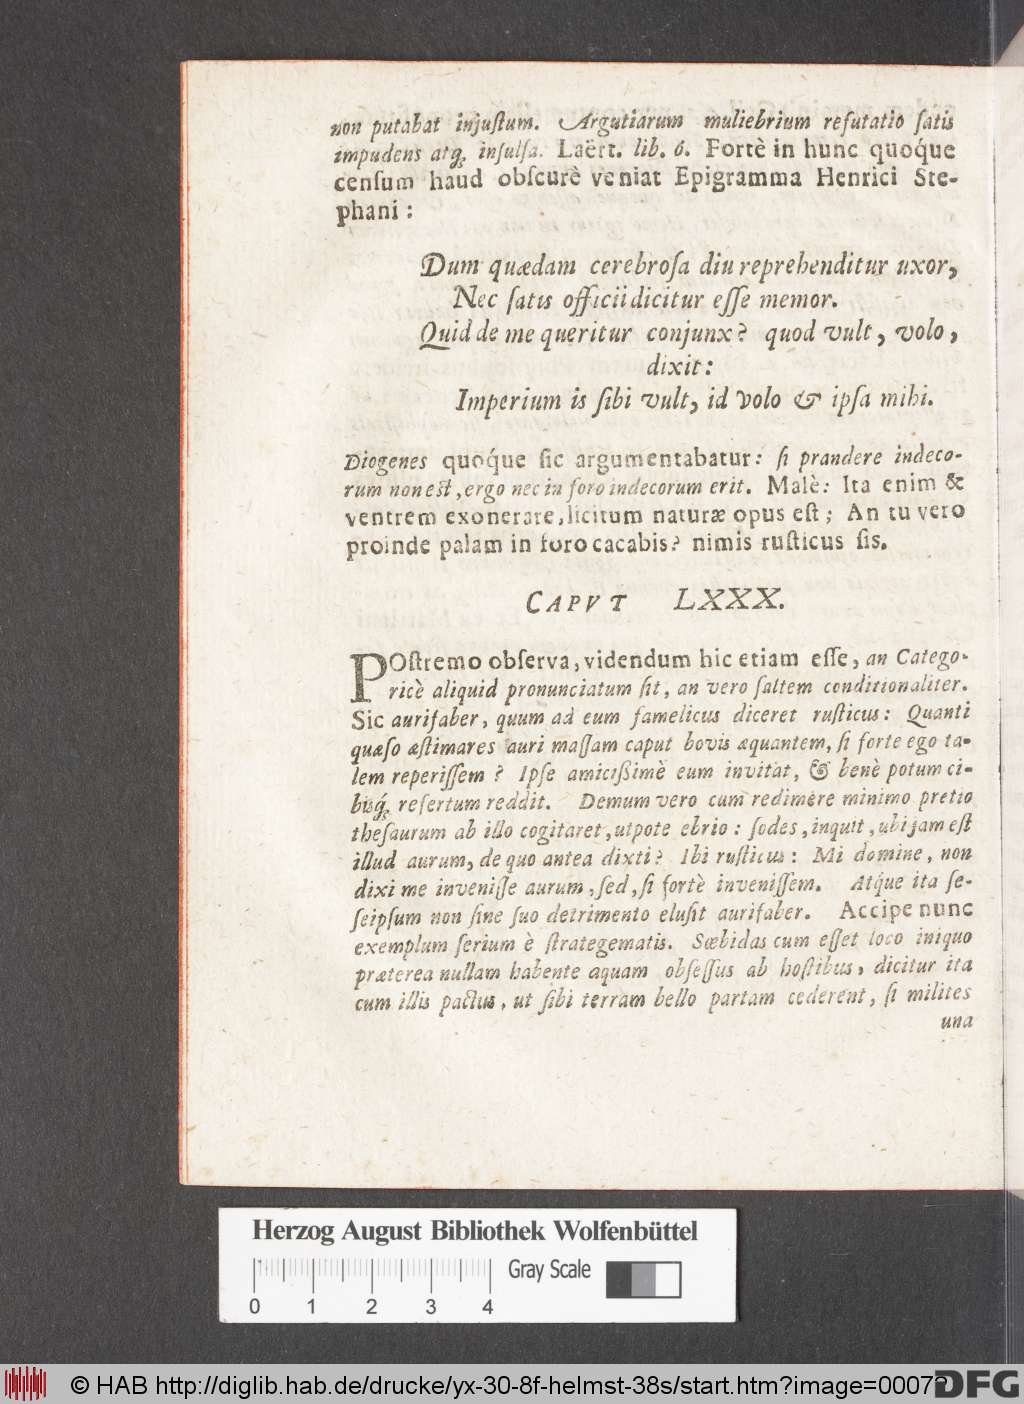 non putabat injuſtum. Argutiarum muliebrium refutatio ſatis
impudens atq; inſulſa. Laërt. lib. 6. Fortè in hunc quoq́ue
cenſum haud obſcurè veniat Epigramma Henrici Ste-
phani:
Dum quædam cerebroſa diu reprehenditur uxor,
Nec ſatis officii dicitur eſſe memor.
Quid de me queritur conjunx? quod vult, volo,
dixit:
Imperium is ſibi vult, id volo & ipſa mihi.
Diogenes quoq́ue ſic argumentabatur: ſi prandere indeco-
rum non eſt, ergo nec in foro indecorum erit. Malè: Ita enim &
ventrem exonerare, licitum naturæ opus eſt; An tu vero
proinde palam in foro cacabis? nimis ruſticus ſis.
CAPVT LXXX.
POſtremo obſerva, videndum hic etiam eſſe, an Catego-
ricè aliquid pronunciatum ſit, an vero ſaltem conditionaliter.
Sic aurifaber, quum ad eum famelicus diceret ruſticus: Quanti
quæſo æſtimares auri maſſam caput bovis æquantem, ſi forte ego ta-
lem reperiſſem? Ipſe amicißimè eum invitat, & benè potum ci-
bisq́; refertum reddit. Demum vero cum redimere minimo pretio
theſaurum ab illo cogitaret, utpote ebrio: ſodes, inquit, ubi jam eſt
illud aurum, de quo antea dixti? Ibi ruſticus: Mi domine, non
dixi me inveniſſe aurum, ſed, ſi fortè inveniſſem. Atq́ue ita ſe-
ſeipſum non ſine ſuo detrimento eluſit aurifaber. Accipe nunc
exemplum ſerium è ſtrategematis. Sœbidas cum eſſet loco iniquo
præterea nullam habente aquam obſeſſus ab hoſtibus, dicitur ita
cum illis pactus, ut ſibi terram bello partam cederent, ſi milites
una
Herzog August Bibliothek Wolfenbüttel
Gray Scale
0 1 2 3 4
© HAB http://diglib.hab.de/drucke/yx-30-8f-helmst-38s/start.htm?image=00072
DFG